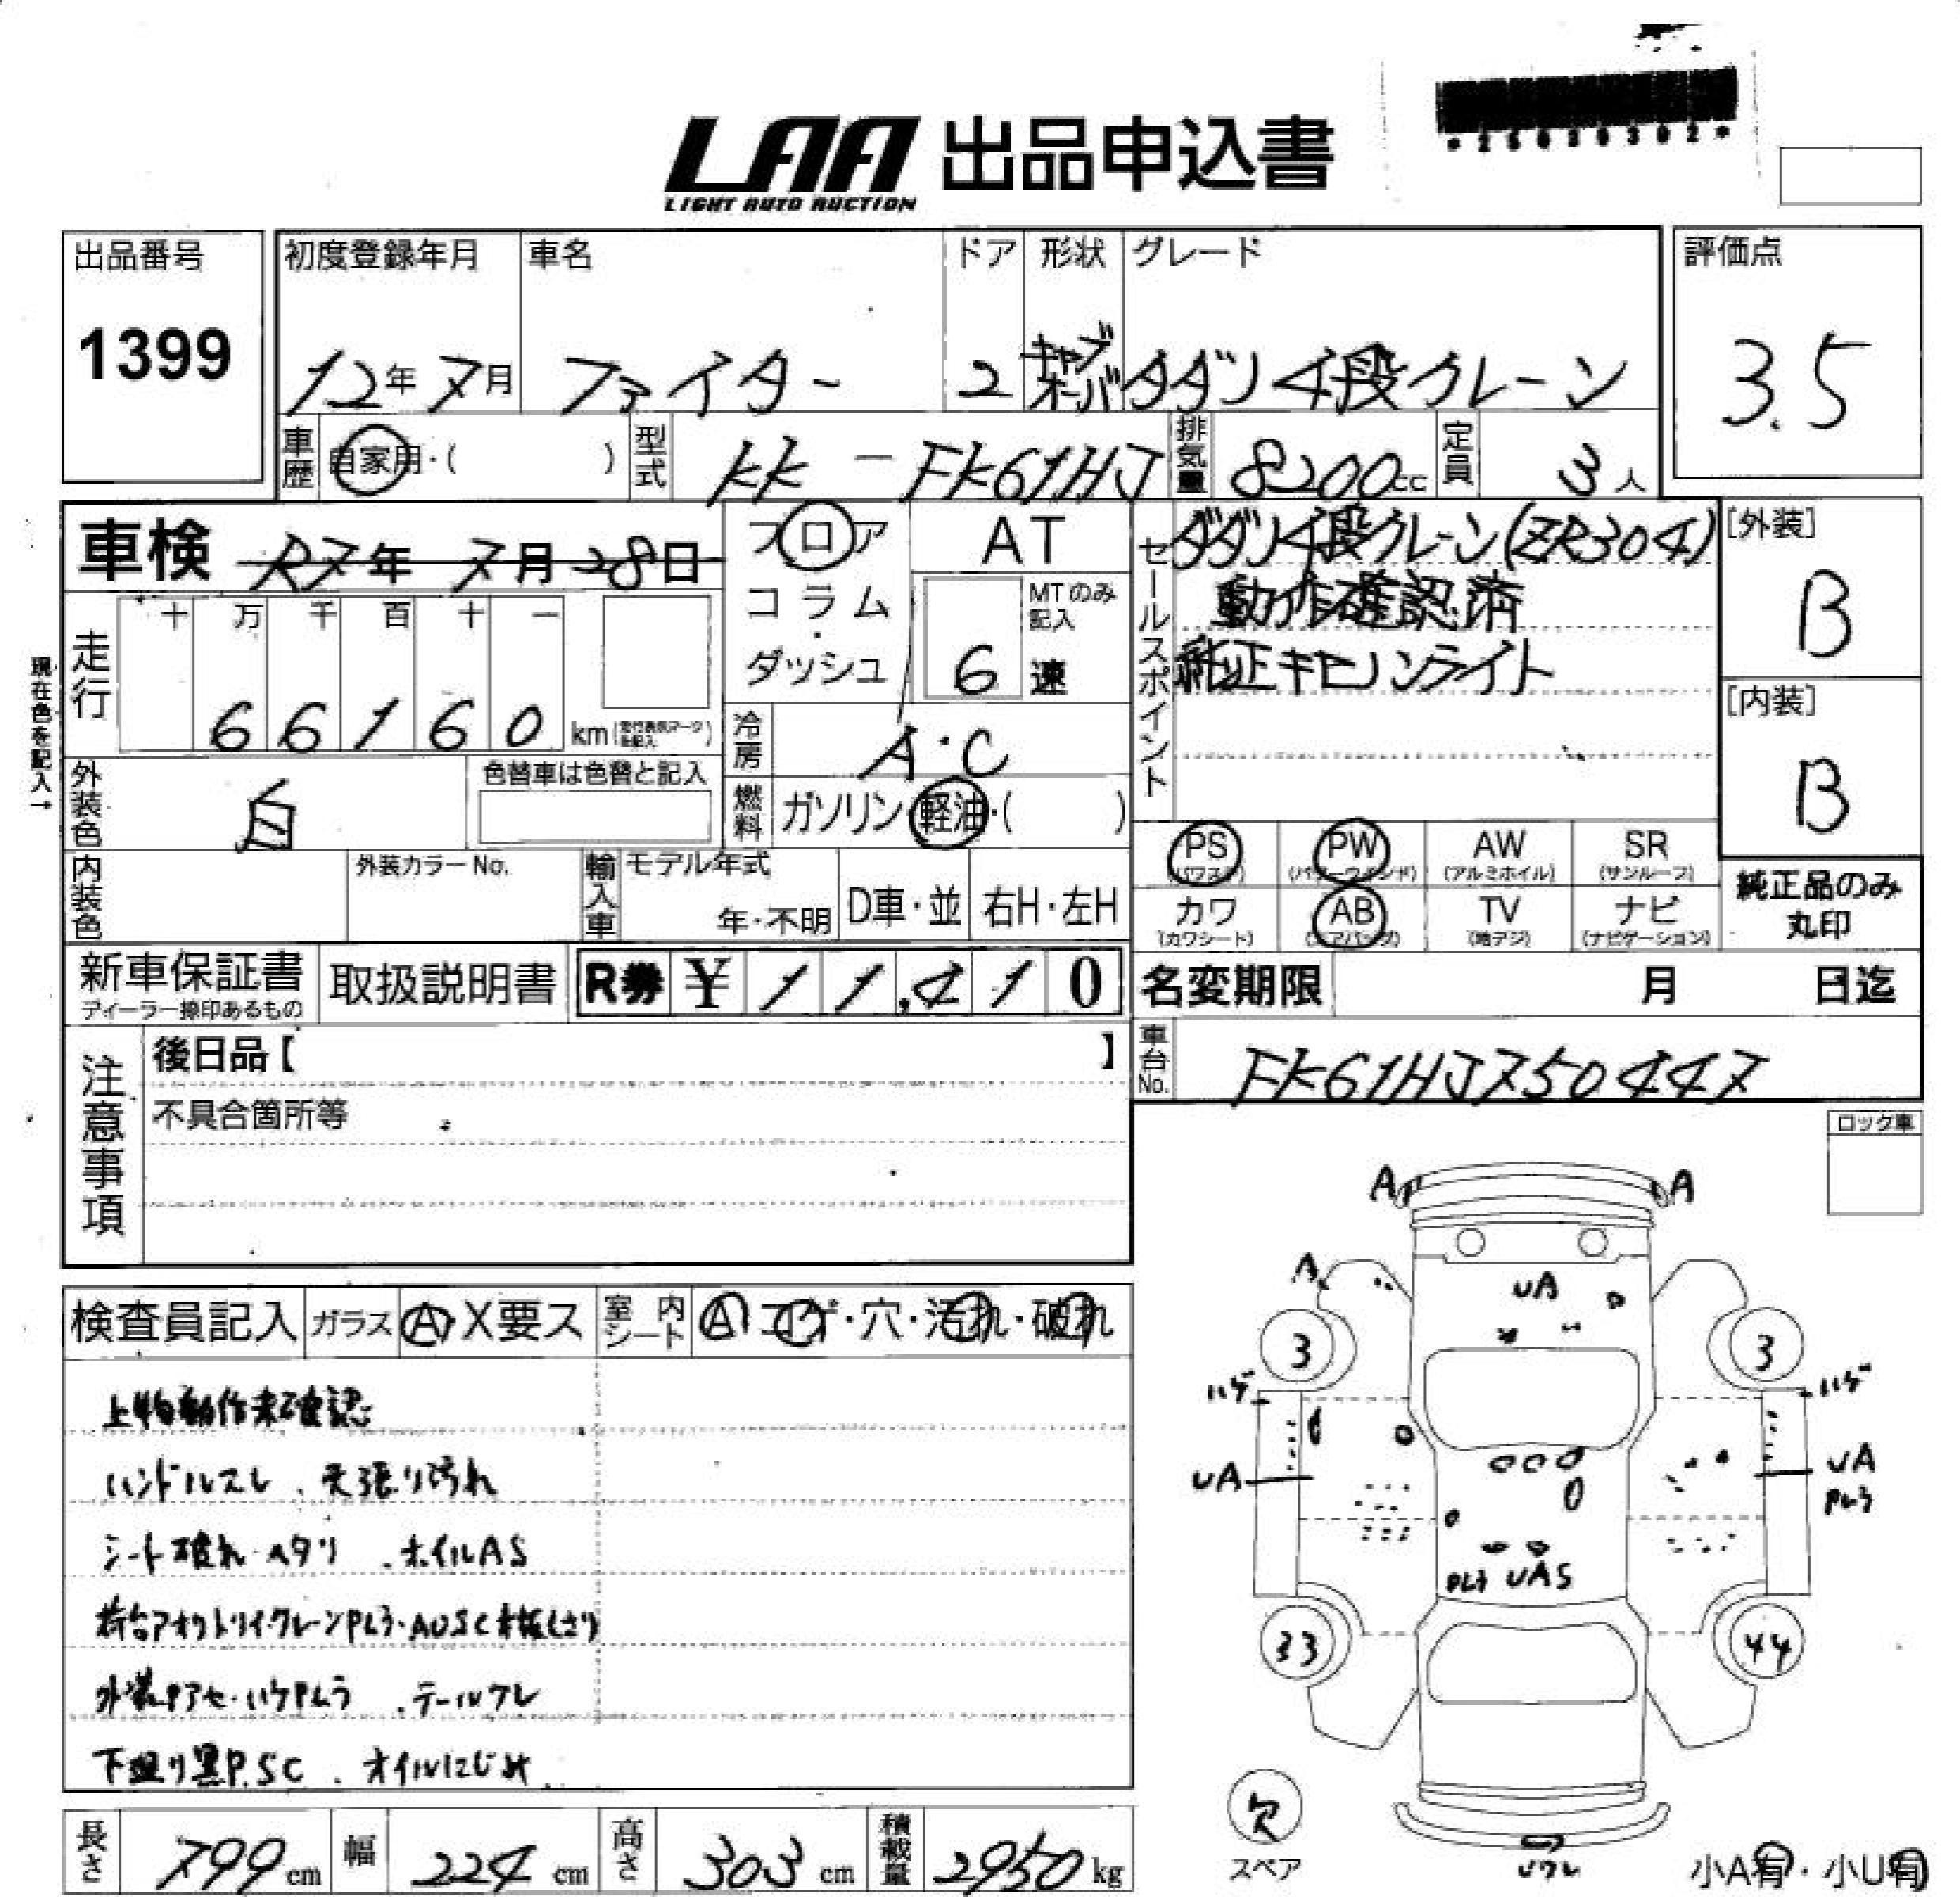 *25020302*
LAA 出品申込書
LIGHT AUTO AUCTION
出品番号 1399
初度登録年月 12年7月
車名 ファイター
ドア 2
形状 キャブオーバ
グレード タダノ4段クレーン
評価点 3.5
車歴 自家用・( )
型式 KK-FK61HJ
排気量 8200cc
定員 3人
車検 R7年7月28日
フロア コラム・ダッシュ
AT
MTのみ記入 6速
セールスポイント
ダダノ4段クレーン(ZR304)
動作確認済
純正キセノンライト
[外装] B
[内装] B
現在色を記入→
走行 十万千百十一
66160 km
外装色 白
色替車は色替と記入
冷房 A・C
燃料 ガソリン・軽油・( )
PS (パワステ) PW (パワーウインド) AW (アルミホイル) SR (サンルーフ)
カワ (カワシート) AB (エアバッグ) TV (地デジ) ナビ (ナビゲーション)
純正品のみ丸印
内装色
外装カラーNo.
輸入車 モデル年式 年・不明 D車・並 右H・左H
新車保証書 ディーラー捺印あるもの
取扱説明書
R券 ¥11,410
名変期限 月 日迄
車台No. FK61HJ750447
注意事項
後日品【 】
不具合箇所等
ロック車
検査員記入 ガラス A・X要ス 室内シート A・コゲ・穴・汚れ・破れ
上物動作未確認
ハンドルスレ、天張り汚れ
シート破れ・ヘタリ、ホイルAS
荷台アオリトリイ・クレーンPムラ・AUSC
外装Pアセ・ハゲPムラ、テールワレ
下廻り黒P.SC、オイルにじみ
A A
A UA
3 3
ハゲ ハゲ
UA UA
Pムラ
Pムラ UAS
33 44
欠
スペア
Uワレ
小A有・小U有
長さ 799cm 幅 224cm 高さ 303cm 積載量 2950kg